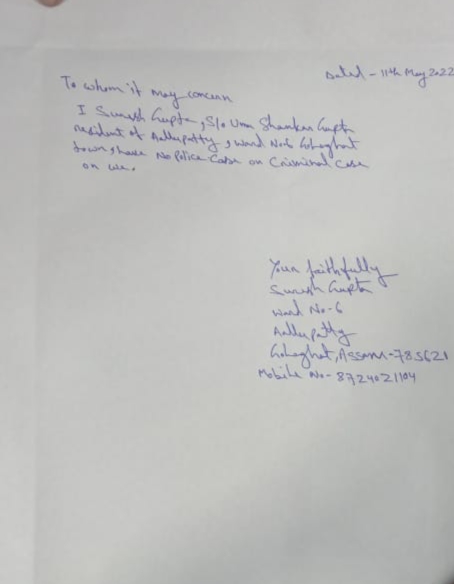 Dated - 11th May 2022
To whom it may concern
I Suresh Gupta, S/o Uma Shankar Gupta
resident of Aallupatty, ward No-6 Golaghat
town, have No Police Case or Criminal Case
on me.
Your faithfully
Suresh Gupta
Ward No-6
Aallupatty
Golaghat, Assam-785621
Mobile No- 8724021104